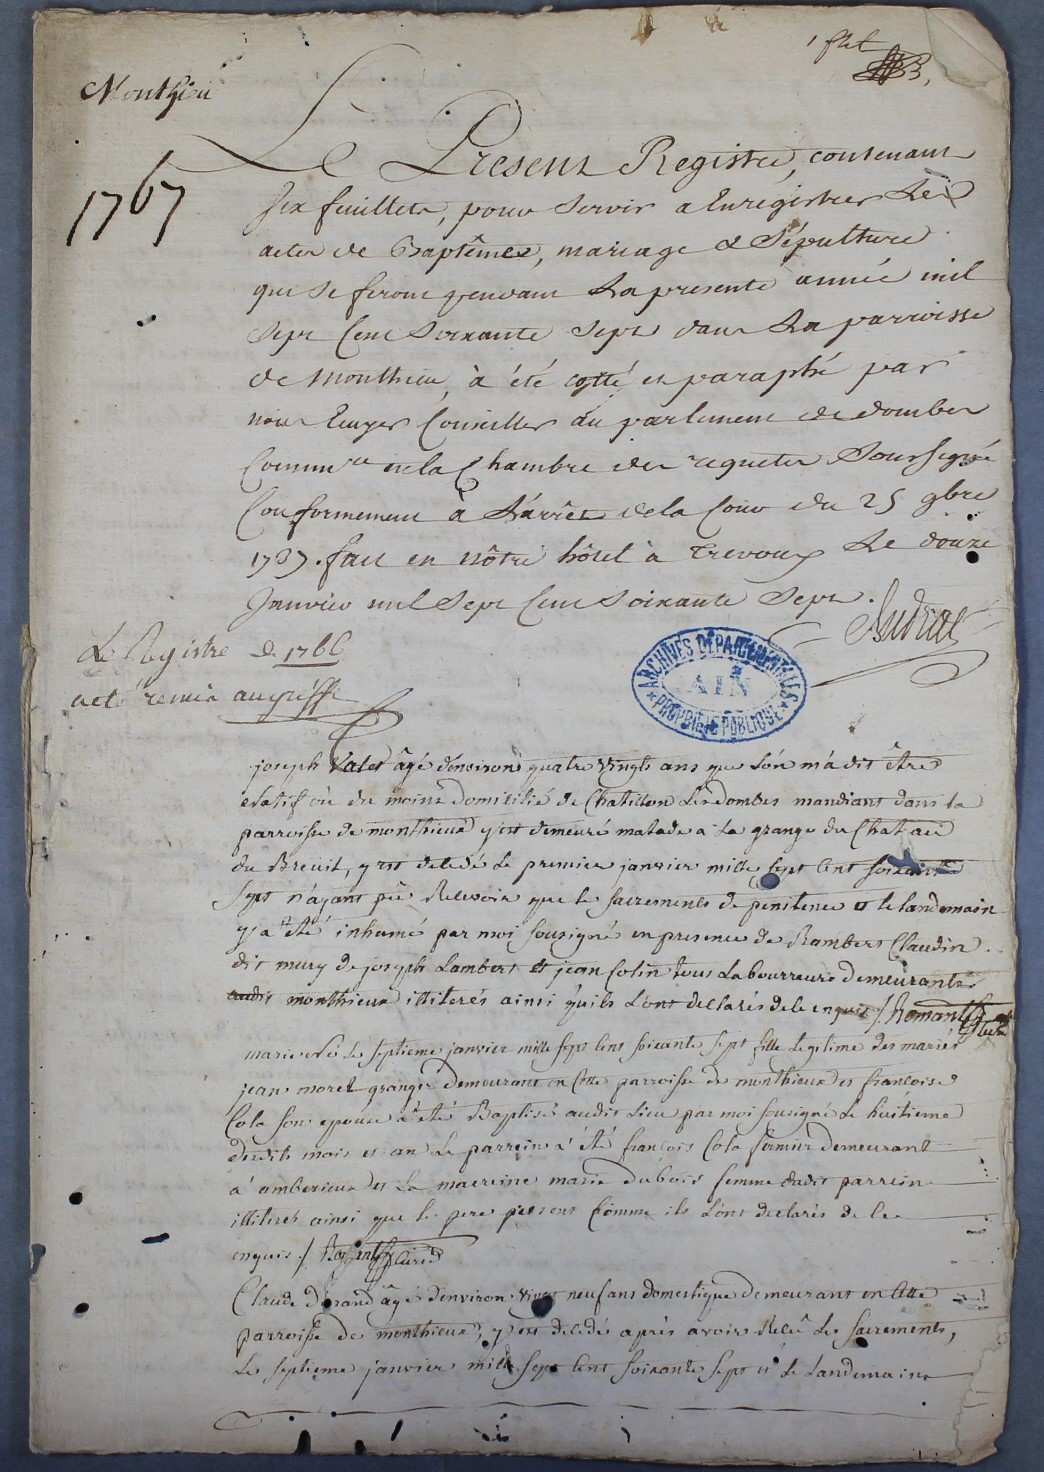 1 flet
Monthieu
1767
Le Present Registre, contenant
six feuillets, pour servir a Enregistrer Les
actes de Baptêmes, mariage & Sépulture
qui se feront pendant La presente année mil
sept Cent soixante sept dans La parroisse
de Monthieu, à été cotté et paraphé par
nous Ecuyer Conseiller au parlement de dombes
Commre en la Chambre des requetes Soussigné
Conformement à L'arrêt de la Cour du 25 9bre
1737. fait en nôtre hôtel à Trevoux Le douze
Janvier mil Sept Cent Soixante Sept.
Le Registre de 1766
a eté remis au greffe
ARCHIVES DÉPARTEMENTALES
AIN
PROPRIÉTÉ PUBLIQUE
joseph Valet âgé d'environ quatre vingts ans que l'on m'a dit être
natif ou du moins domicilié de Chatillon Les dombes mandiant dans la
parroisse de monthieux y est demeuré malade a la grange du Chateau
du Breuil, y est decedé Le premier janvier mille sept cent soixante
sept n'ayant pû Recevoir que le sacrements de penitence et le landemain
y a été inhumé par moi sousigné en presence de Rambert Claudin
dit mury de joseph Lambert et jean Colin tous Labourreurs demeurants
audit monthieux illiterés ainsi qu'ils L'ont declarés de le enquis /.
marie née Le septieme janvier mille sept cent soixante sept fille Legitime des mariés
jean morel granger demeurant en cette parroisse de monthieux et francoise
Cola son epouse a été Baptisé audit Lieu par moi sousigné Le huitieme
desdits mois et an Le parrein a été françois Cola fermier demeurant
a amberieux et La marreine marie dubois femme dudit parrein
illiterés ainsi que le pere present comme ils L'ont declarés de le
enquis /. Curé
Claude durand âgé d'environ vingt neuf ans domestique demeurant en Cette
parroisse de monthieux, y est decedé aprés avoir Recû Les sacrements,
Le septieme janvier mille sept cent soixante sept et le landemain